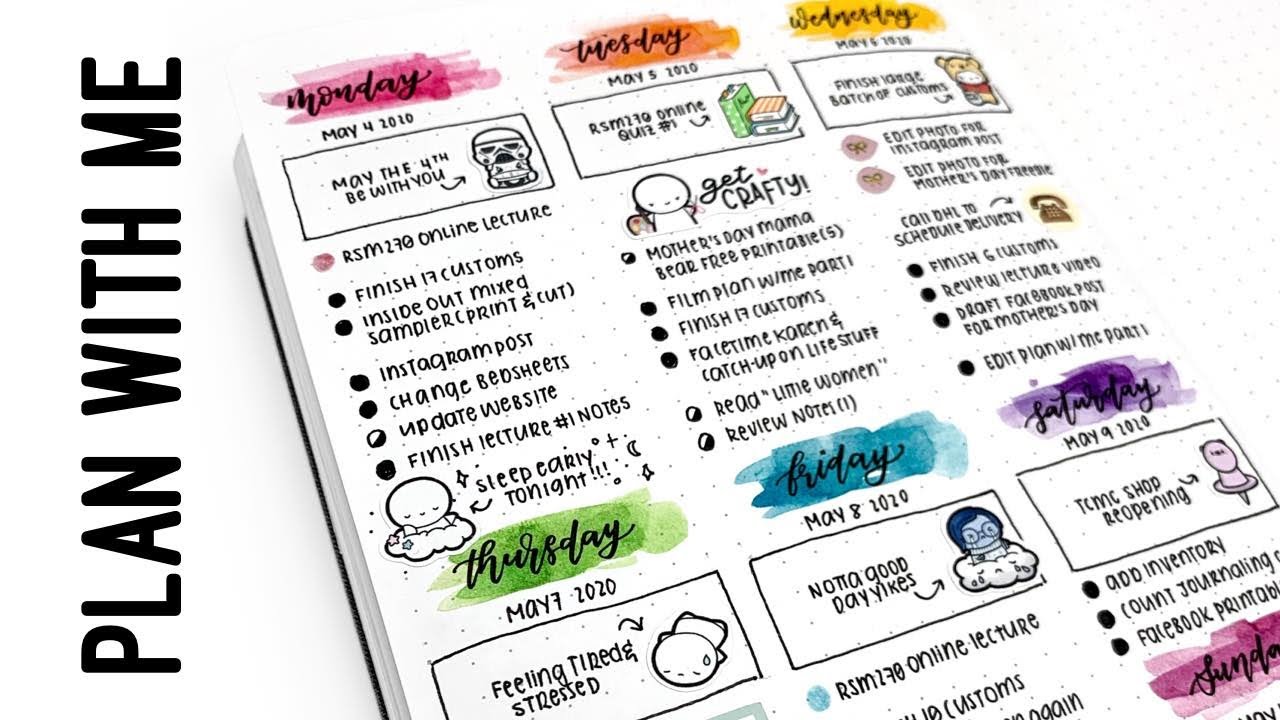 PLAN WITH ME
monday
MAY 4 2020
MAY THE 4TH
BE WITH YOU
RSM270 ONLINE LECTURE
FINISH 17 CUSTOMS
INSIDE OUT MIXED
SAMPLER (PRINT & CUT)
INSTAGRAM POST
CHANGE BEDSHEETS
UPDATE WEBSITE
FINISH LECTURE #1 NOTES
SLEEP EARLY
TONIGHT!!!
tuesday
MAY 5 2020
RSM270 ONLINE
QUIZ #1
get
CRAFTY!
MOTHER'S DAY MAMA
BEAR FREE PRINTABLE(S)
FILM PLAN W/ME PART 1
FINISH 17 CUSTOMS
FACETIME KAREN &
CATCH-UP ON LIFE STUFF
READ "LITTLE WOMEN"
REVIEW NOTES (1)
wednesday
MAY 6 2020
FINISH LARGE
BATCH OF CUSTOMS
EDIT PHOTO FOR
INSTAGRAM POST
EDIT PHOTO FOR
MOTHER'S DAY FREEBIE
CALL DHL TO
SCHEDULE DELIVERY
FINISH 6 CUSTOMS
REVIEW LECTURE VIDEO
DRAFT FACEBOOK POST
FOR MOTHER'S DAY
EDIT PLAN W/ME PART 1
thursday
MAY 7 2020
FEELING TIRED &
STRESSED
friday
MAY 8 2020
NOTTA GOOD
DAY, YIKES
RSM270 ONLINE LECTURE
CUSTOMS
AGAIN
saturday
MAY 9 2020
TCMC SHOP
REOPENING
ADD INVENTORY
COUNT JOURNALING
FACEBOOK PRINTABL
Sunda